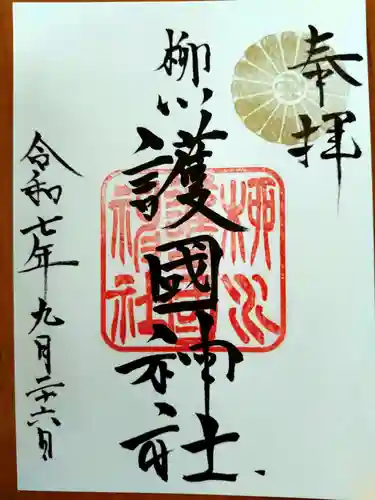 奉拝
柳川護國神社
柳川護國神社
令和七年九月二十六日